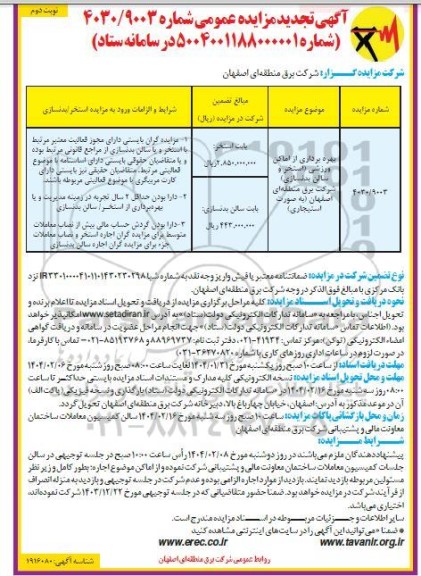 نوبت دوم
آگهی تجدید مزایده عمومی شماره ۴۰۳۰/۹۰۰۳
(شماره ۵۰۰۴۰۰۱۱۸۸۰۰۰۰۰۱ در سامانه ستاد)
شرکت مزایده گزار: شرکت برق منطقه‌ای اصفهان
شماره مزایده
موضوع مزایده
مبالغ تضمین شرکت در مزایده (ریال)
شرایط و الزامات ورود به مزایده استخر/بدنسازی
۴۰۳۰/۹۰۰۳
بهره برداری از اماکن
ورزشی (استخر و
سالن بدنسازی)
شرکت برق منطقه‌ای
اصفهان (به صورت
استیجاری)
بابت استخر:
۲،۸۵۰،۰۰۰،۰۰۰ ریال
بابت سالن بدنسازی:
۴۴۳،۰۰۰،۰۰۰ ریال
۱- مزایده گران بایستی دارای مجوز فعالیت معتبر مرتبط
با استخر و یا سالن بدنسازی از مراجع قانونی مرتبط بوده
و یا متقاضیان حقوقی بایستی دارای اساسنامه با موضوع
فعالیتی مرتبط، متقاضیان حقیقی نیز بایستی دارای
کارت مربیگری با موضوع فعالیتی مربوطه باشند
۲- دارا بودن حداقل ۲ سال تجربه در زمینه مدیریت و یا
بهره‌برداری از استخر/ سالن بدنسازی
۳- دارا بودن گردش حساب مالی بیش از نصاب معاملات
متوسط برای مزایده گران اجاره استخر و نصاب معاملات
جزء برای مزایده گران اجاره سالن بدنسازی
نوع تضمین شرکت در مزایده: ضمانتنامه معتبر یا فیش واریز وجه نقد به شماره شبا IR۳۳۰۱۰۰۰۰۴۱۰۱۱۰۱۴۳۲۳۰۲۹۸ نزد
بانک مرکزی با مبالغ فوق الذکر در وجه شرکت برق منطقه‌ای اصفهان.
نحوه دریافت و تحویل اسناد مزایده: کلیه مراحل برگزاری مزایده از دریافت و تحویل اسناد مزایده تا اعلام برنده و
تحویل اجناس، با مراجعه به «سامانه تدارکات الکترونیکی دولت (ستاد)» به آدرس www.setadiran.ir امکانپذیر خواهد
بود. (اطلاعات تماس «سامانه تدارکات الکترونیکی دولت (ستاد)» جهت انجام مراحل عضویت در سامانه و دریافت گواهی
امضاء الکترونیکی (توکن): مرکز تماس: ۴۱۹۳۴-۰۲۱ دفتر ثبت نام: ۸۸۹۶۹۷۳۷ و ۸۵۱۹۳۷۶۸-۰۲۱) تماس با کارفرما،
در صورت لزوم در ساعات اداری روزهای کاری با شماره ۳۶۲۷۰۸۲۰-۰۳۱
مهلت دریافت اسناد: از ساعت ۱۰ صبح روز یکشنبه مورخ ۱۴۰۴/۰۱/۳۱ لغایت ساعت ۰۸:۰۰ صبح روز شنبه مورخ ۱۴۰۴/۰۲/۰۶
مهلت و محل تحویل اسناد مزایده: نسخه الکترونیکی کلیه مدارک و مستندات اسناد مزایده بایستی حداکثر تا ساعت
۰۸:۰۰ روز سه شنبه مورخ ۱۴۰۴/۰۲/۱۶ در «سامانه تدارکات الکترونیکی دولت (ستاد)» بارگذاری و نسخه فیزیکی (پاکت الف)
آن در موعد مذکور به آدرس: اصفهان، خیابان چهارباغ بالا، دبیرخانه شرکت برق منطقه‌ای اصفهان تحویل گردد.
زمان و محل بازگشایی پاکات مزایده: ساعت ۱۰ صبح روز سه شنبه مورخ ۱۴۰۴/۰۲/۱۶ سالن کمیسیون معاملات ساختمان
معاونت مالی و پشتیبانی شرکت برق منطقه‌ای اصفهان
شرایط مزایده:
پیشنهاددهندگان ملزم می‌باشند در روز دوشنبه مورخ ۱۴۰۴/۰۲/۰۸ رأس ساعت ۱۰:۰۰ صبح در جلسه توجیهی در سالن
جلسات کمیسیون معاملات ساختمان معاونت مالی و پشتیبانی شرکت نموده و از اماکن موضوع اجاره، بطور کامل و زیر نظر
مسئولین مربوطه بازدید نمایند. بازدید از موارد اجاره الزامی بوده و عدم شرکت در جلسه توجیهی و بازدید به منزله انصراف
از فرآیند شرکت در مزایده خواهد بود. ضمناً حضور متقاضیانی که در جلسه توجیهی مورخ ۱۴۰۳/۱۲/۲۲ شرکت نموده‌اند،
اختیاری می‌باشد.
سایر اطلاعات و جزییات مربوطه در اسناد مزایده مندرج است.
* ضمناً «می‌توانید این آگهی را در سایت‌های اینترنتی مشاهده کنید
www.tavanir.org.ir
www.erec.co.ir
روابط عمومی شرکت برق منطقه‌ای اصفهان
شناسه آگهی: ۱۹۱۶۰۸۰